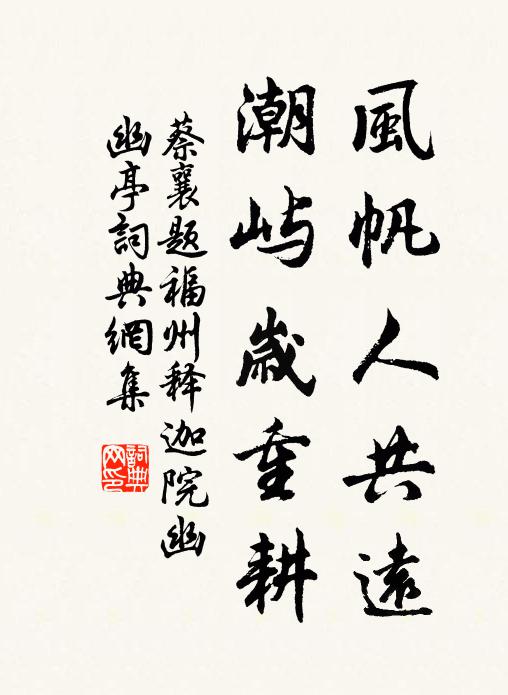 風帆人共遠
潮屿歲重耕
蔡襄題福州释迦院幽
幽亭詞典網集
詞典
网印